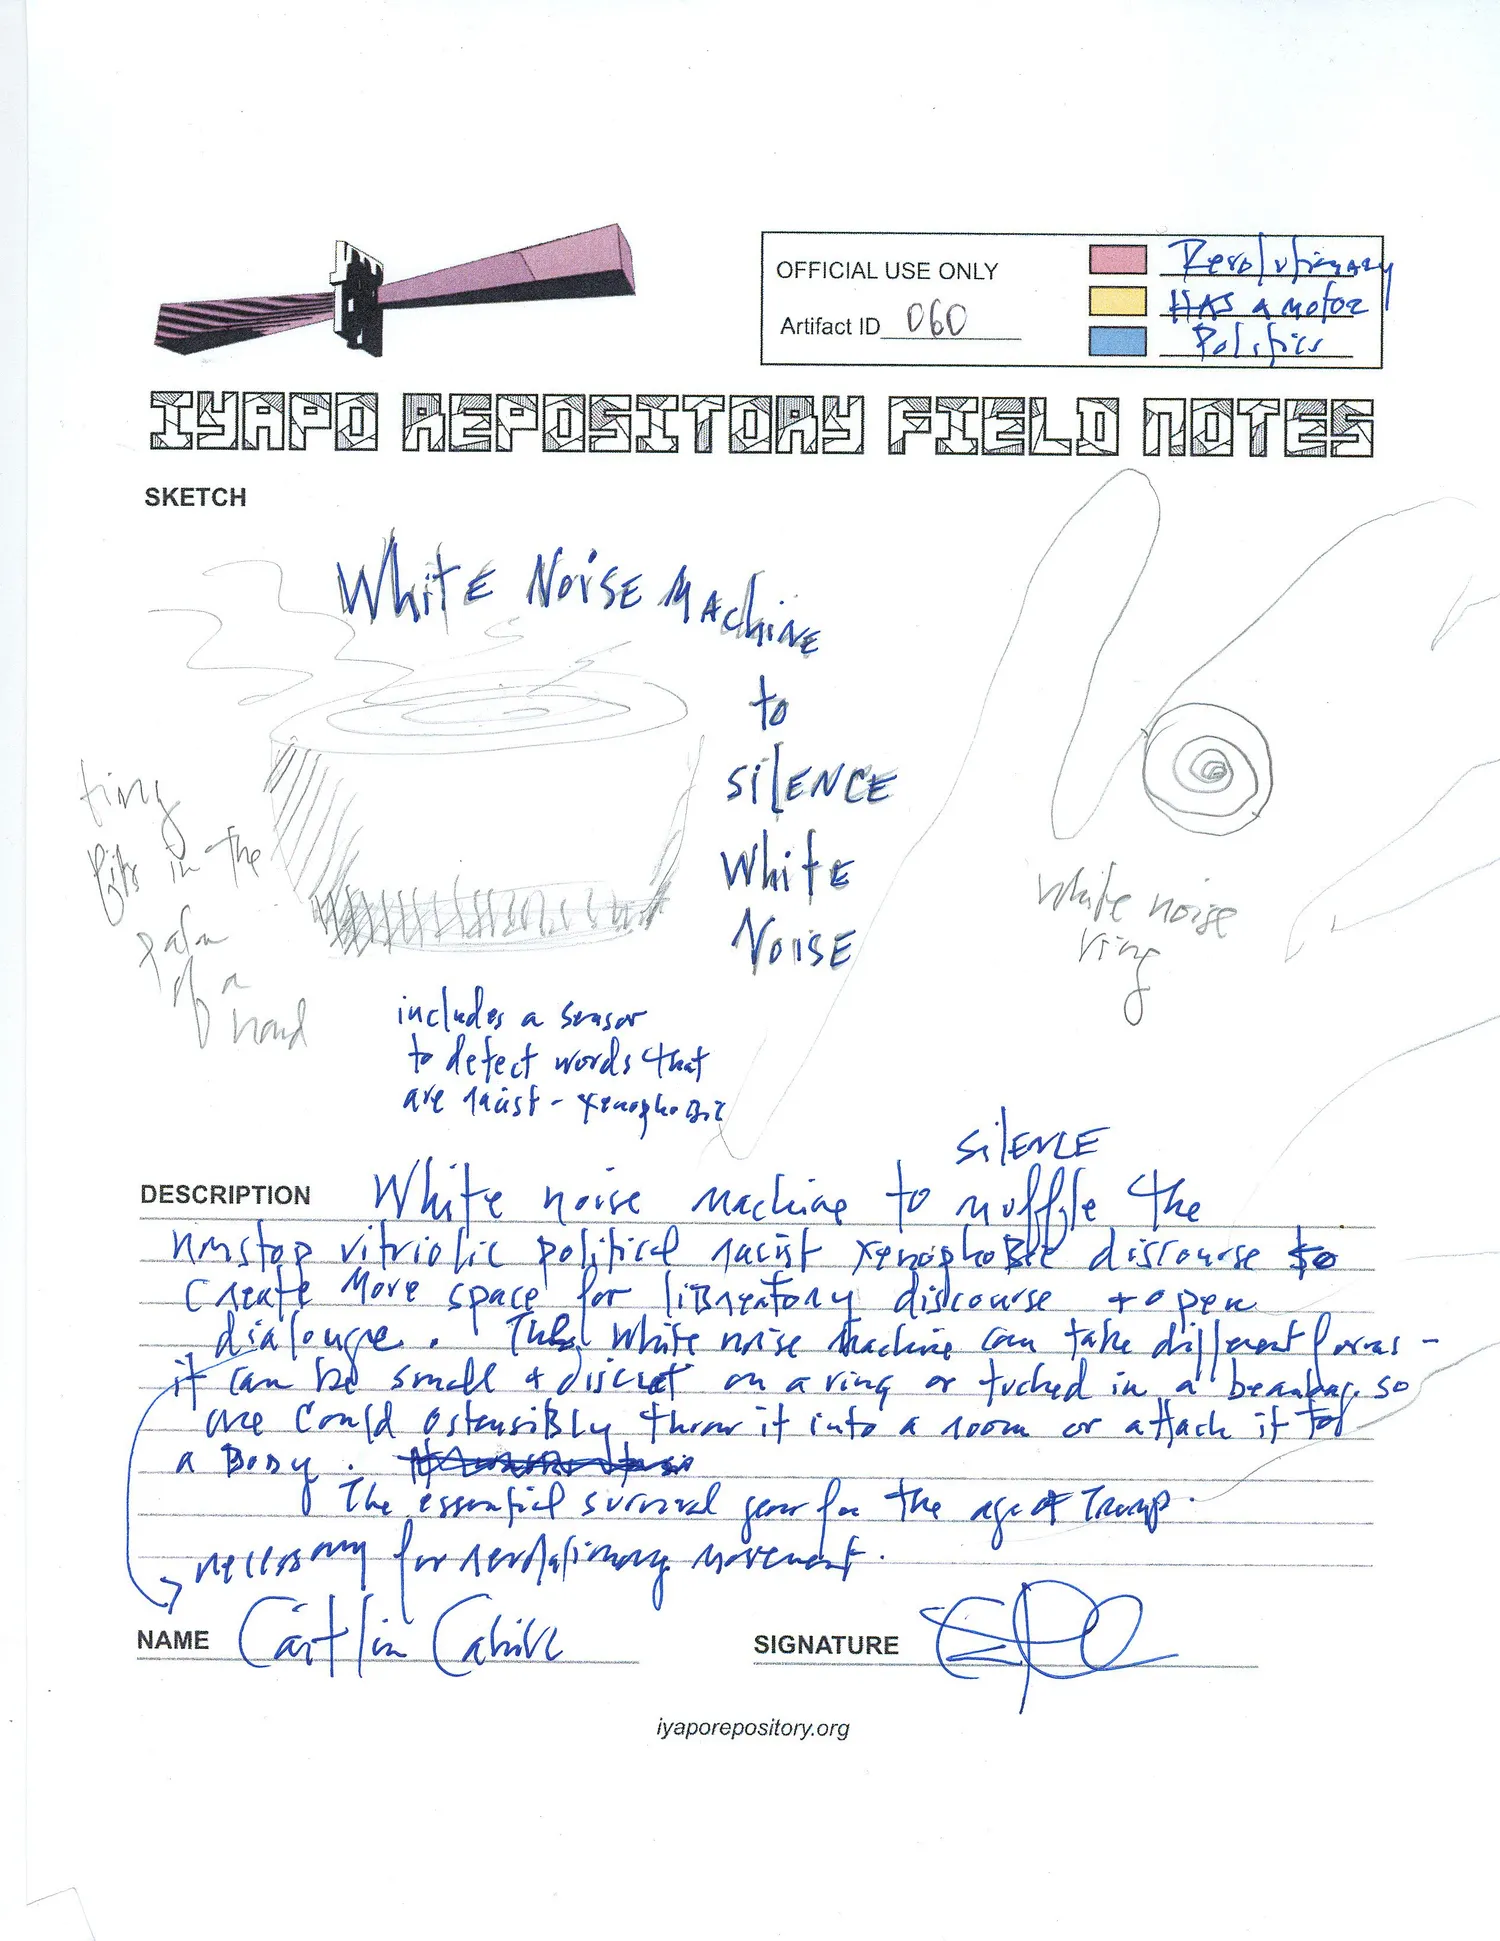 OFFICIAL USE ONLY
Artifact ID 060
Revolutionary
HAS a motor
Politics
IYAPO REPOSITORY FIELD NOTES
SKETCH
White Noise Machine
to
Silence
White
Noise
tiny
fits in the
palm
of a
hand
white noise
ring
includes a sensor
to detect words that
are racist - xenophobic
silence
DESCRIPTION White noise machine to muffle the
nonstop vitriolic political racist xenophobic discourse to
create more space for libreatory discourse + open
dialougre. This white noise machine can take different forms -
it can be small + discret on a ring or tucked in a beanbag, so
one could ostensibly throw it into a room or attach it to
a body.
The essential survival gear for the age of Trump.
necessary for revolutionary movement.
NAME Caitlin Cahill
SIGNATURE
iyaporepository.org